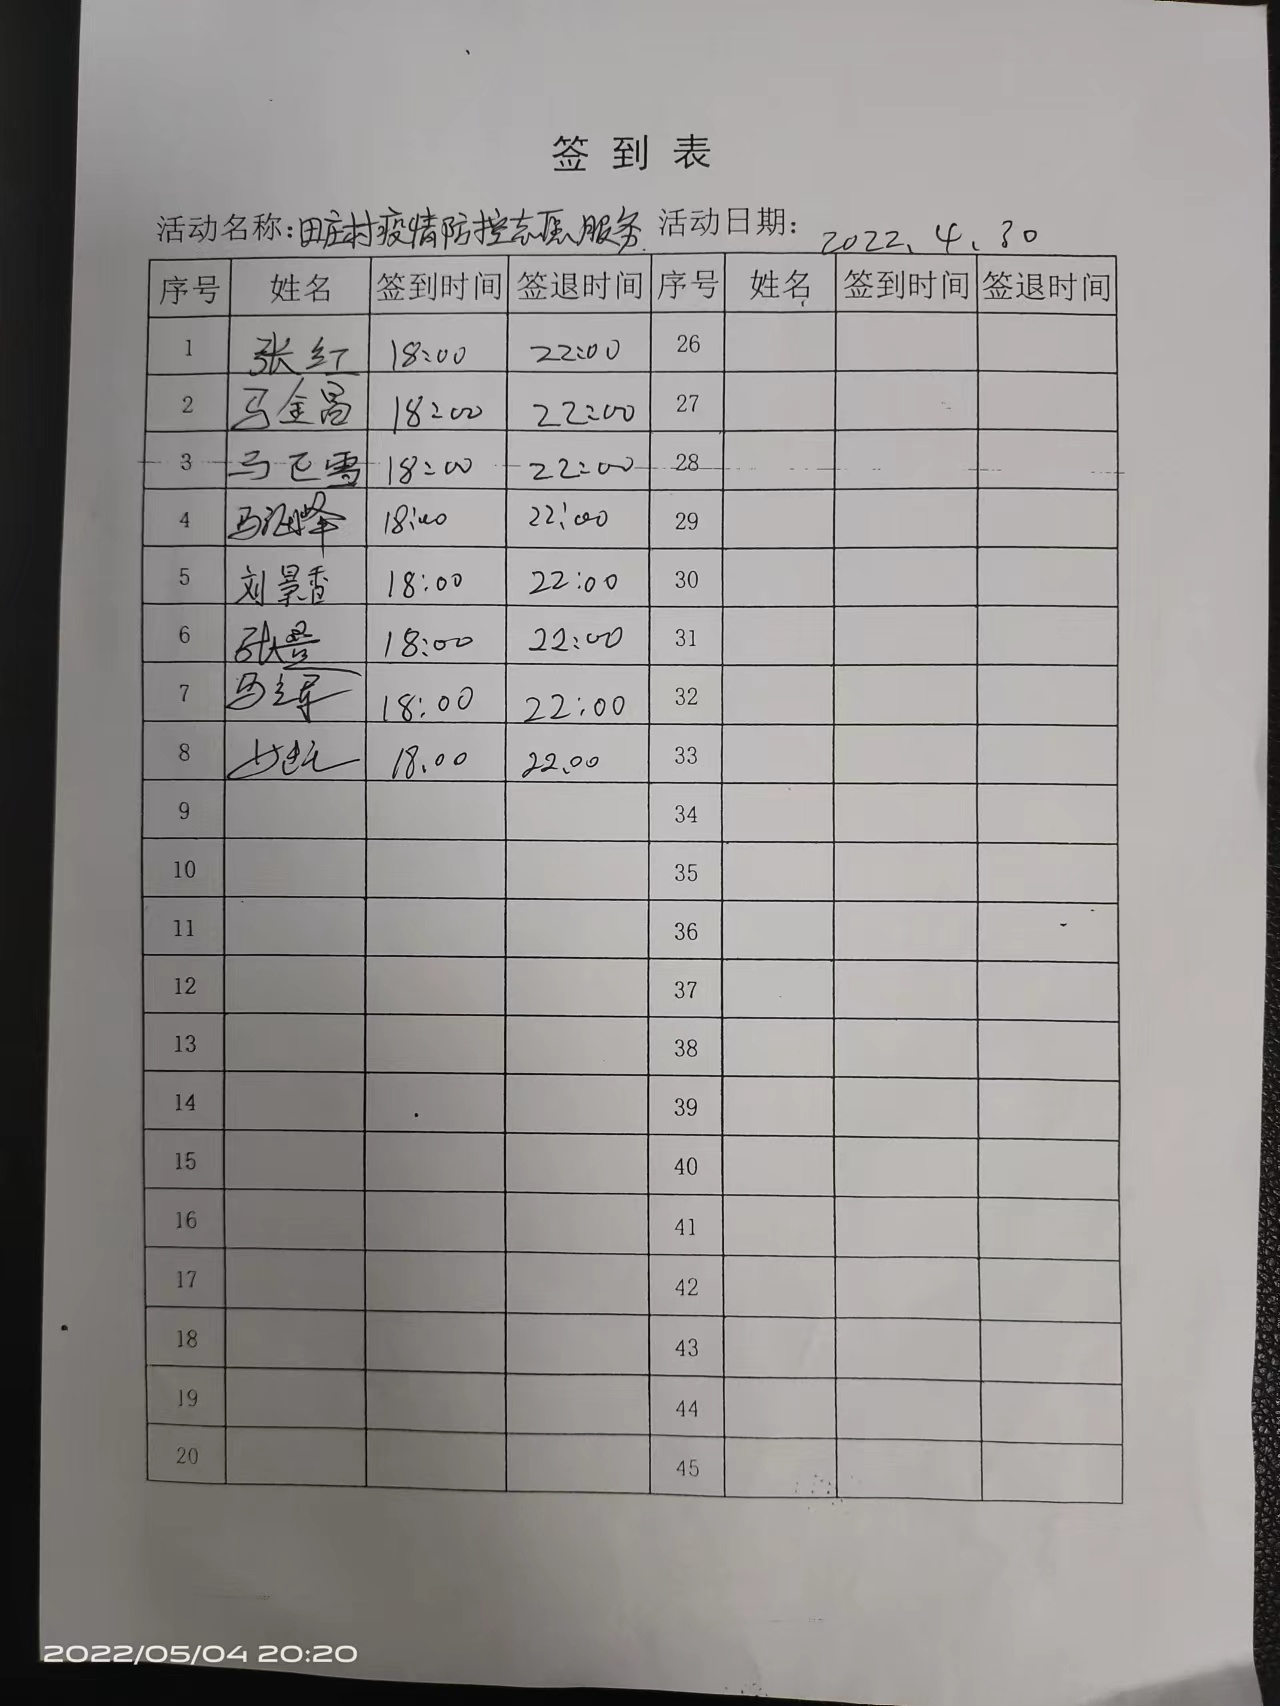 签到表
活动名称:田庄村疫情防控志愿服务 活动日期: 2022.4.30
序号 姓名 签到时间 签退时间 序号 姓名 签到时间 签退时间
1 张红 18:00 22:00 26
2 马金昌 18:00 22:00 27
3 马飞雪 18:00 22:00 28
4 马海峰 18:00 22:00 29
5 刘景香 18:00 22:00 30
6 18:00 22:00 31
7 18:00 22:00 32
8 18.00 22.00 33
9 34
10 35
11 36
12 37
13 38
14 39
15 40
16 41
17 42
18 43
19 44
20 45
2022/05/04 20:20